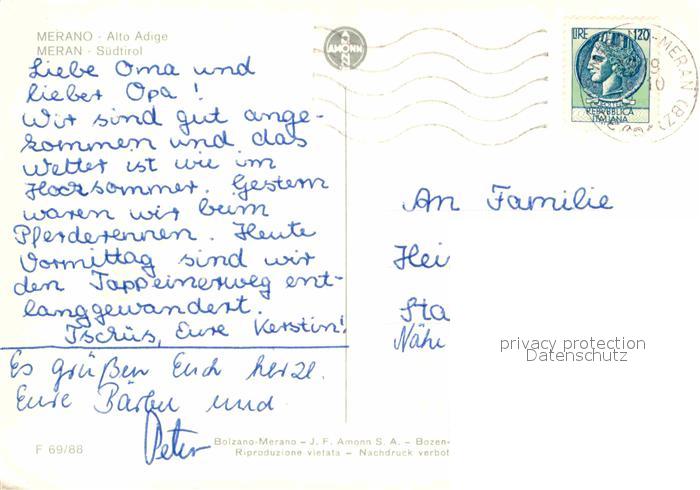 MERANO - Alto Adige
MERAN - Südtirol
Liebe Oma und
lieber Opa!
Wir sind gut ange-
kommen und das
Wetter ist wie im
Hochsommer. Gestern
waren wir beim
Pferderennen. Heute
Vormittag sind wir
den Tappeinerweg ent-
langgewandert.
Tschüs, Eure Kerstin!
Es grüßen Euch herzl.
Eure Bärbel und
Peter
F 69/88
AMONN
LIRE 120
REPUBBLICA
ITALIANA
MERAN (BZ)
19
10
An Familie
Hei
Sta
Nähe
privacy protection
Datenschutz
Bolzano-Merano – J. F. Amonn S. A. – Bozen-
Riproduzione vietata – Nachdruck verbot